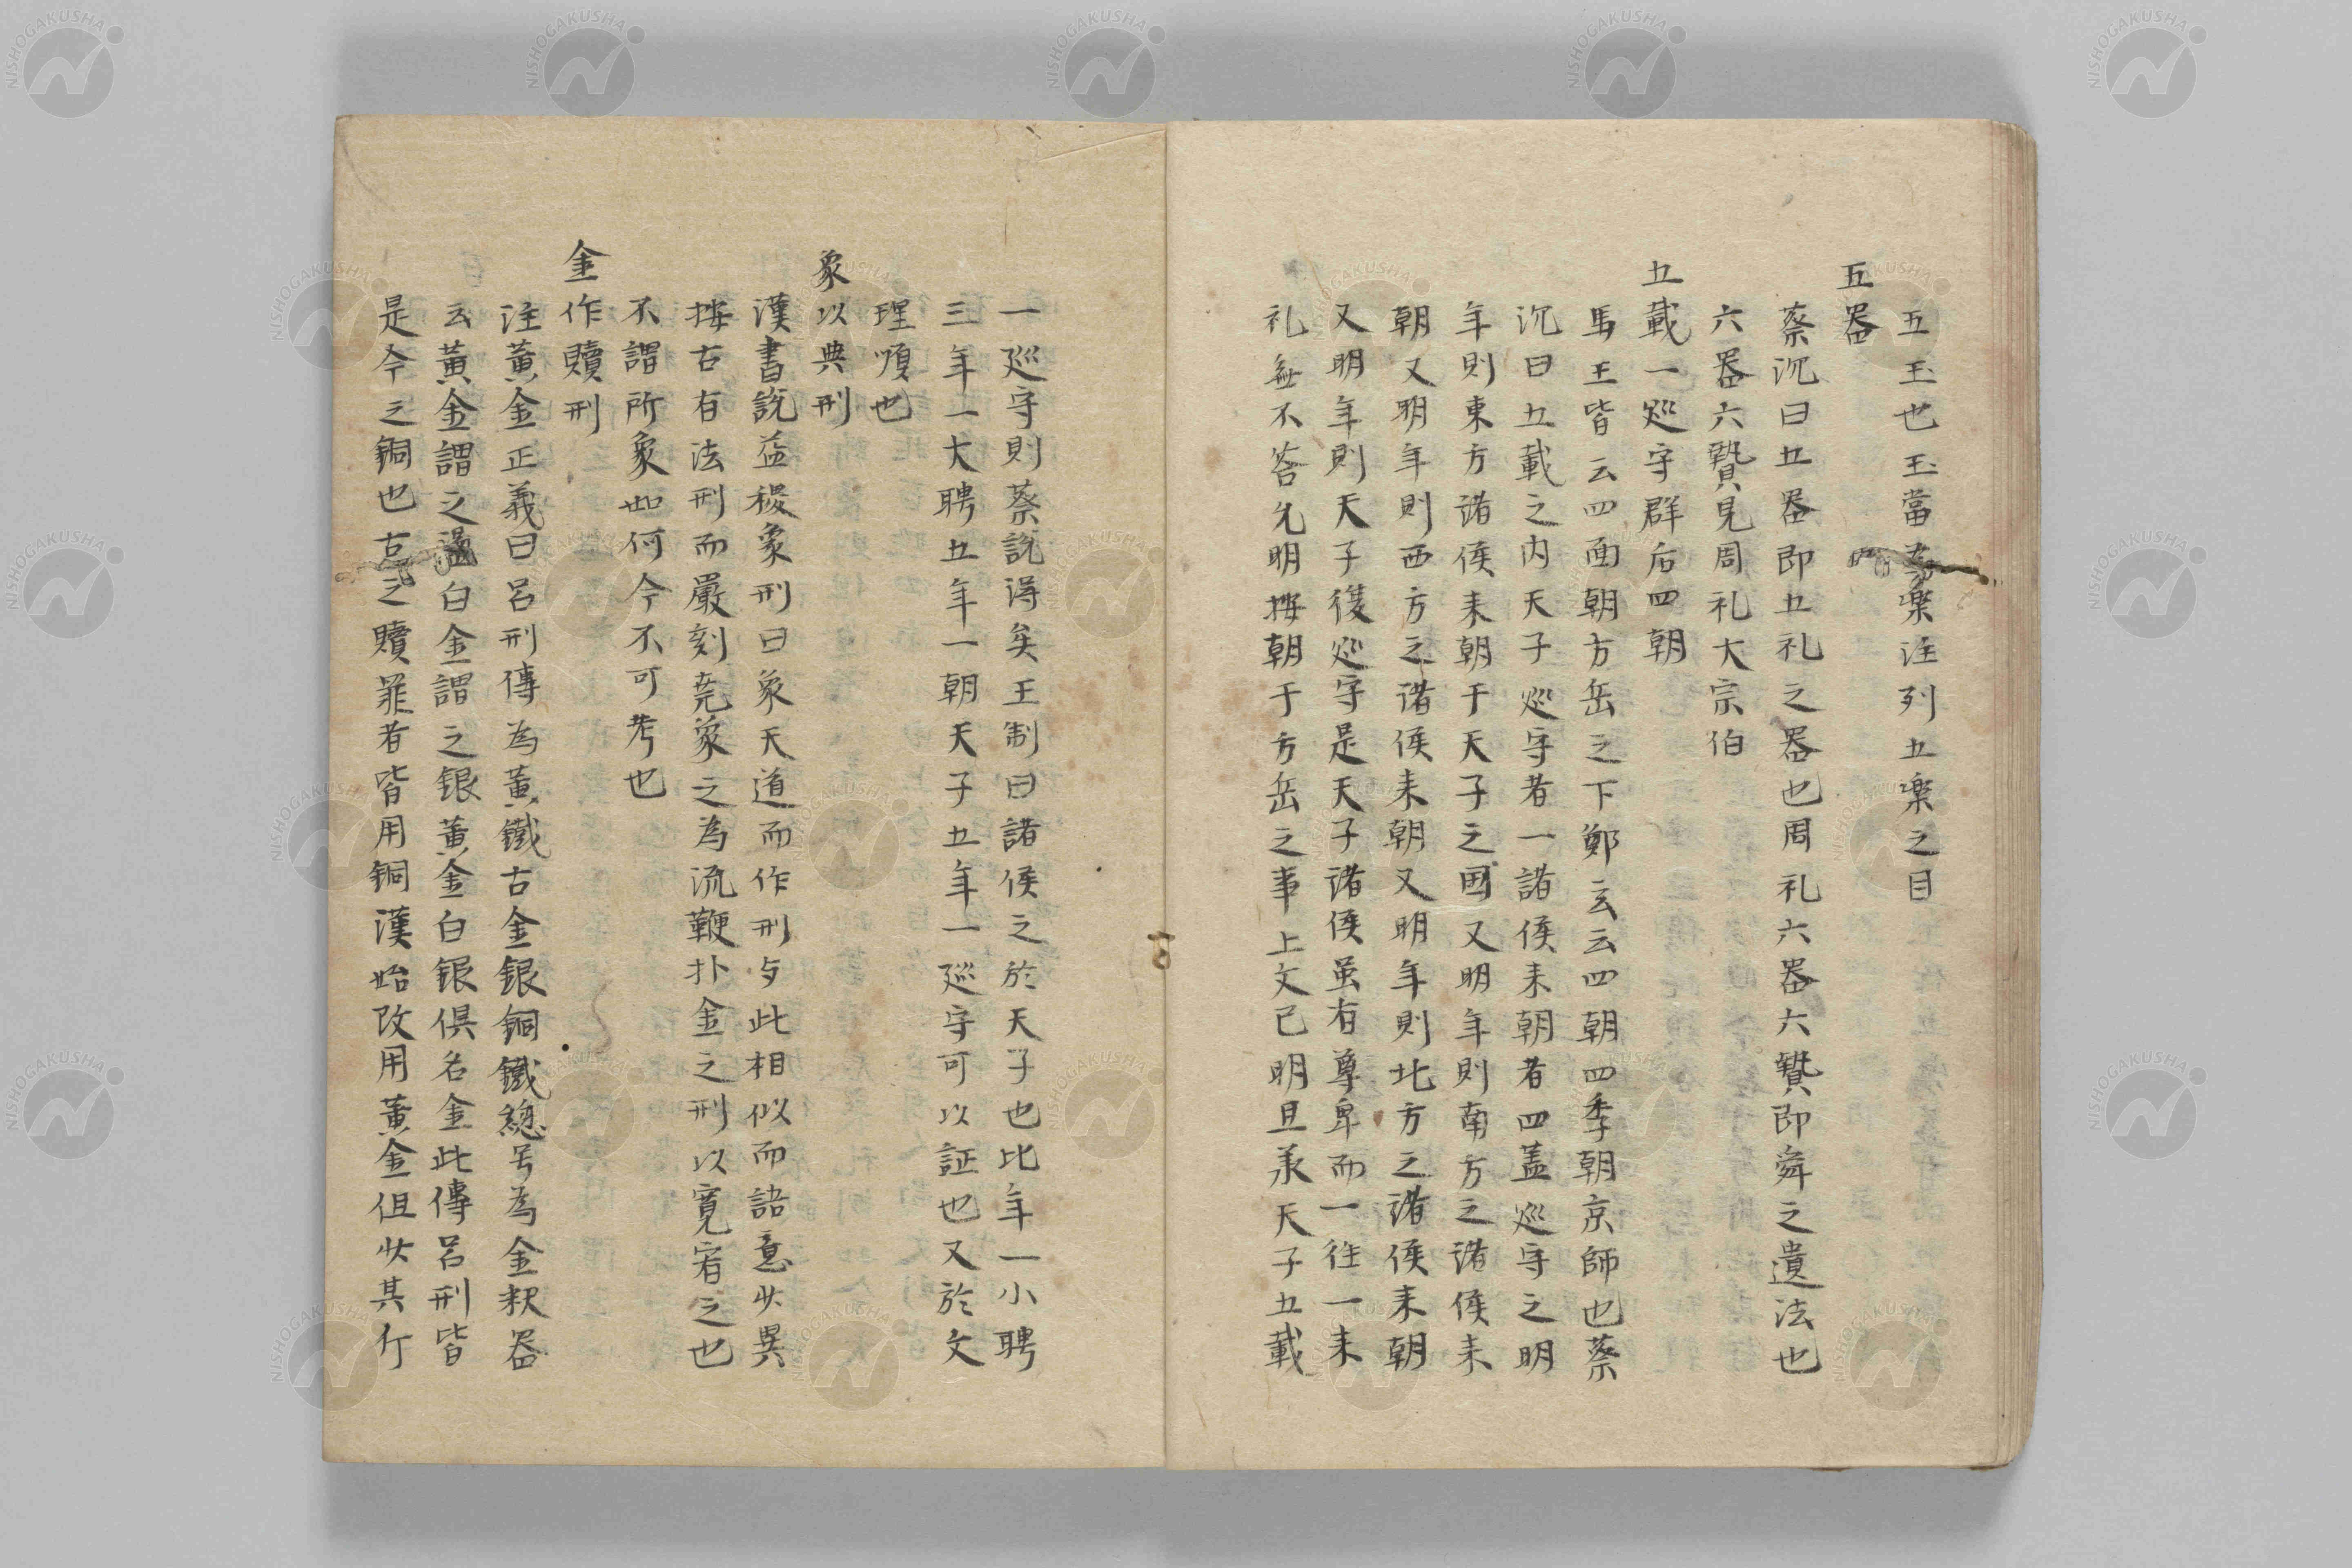 五玉也玉當為樂注列五楽之目
五器
蔡沉曰五器即五礼之器也周礼六器六贄即舜之遺法也
六器六贄見周礼大宗伯
五載一巡守群后四朝
馬王皆云四面朝方岳之下鄭云云四朝四季朝京師也蔡
沉曰五載之内天子巡守者一諸侯来朝者四蓋巡守之明
年則東方諸侯来朝于天子之國又明年則南方之諸侯来
朝又明年則西方之諸侯来朝又明年則北方之諸侯来朝
又明年則天子復巡守是天子諸侯虽有尊卑而一往一来
礼無不答允明按朝于方岳之事上文已明且承天子五載
一巡守則蔡説得矣王制曰諸侯之於天子也比年一小聘
三年一大聘五年一朝天子五年一巡守可以証也又於文
理順也
象以典刑
漢書説益稷象刑曰象天道而作刑与此相似而語意少異
按古有法刑而嚴刻尭象之為流鞭扑金之刑以寛宥之也
不謂所象如何今不可考也
金作贖刑
注黄金正義曰呂刑傳為黄鐵古金銀銅鐵總号為金釈器
云黄金謂之璗白金謂之銀黄金白銀倶名金此傳呂刑皆
是今之銅也古之贖罪者皆用銅漢始改用黄金但少其斤
NISHOGAKUSHA